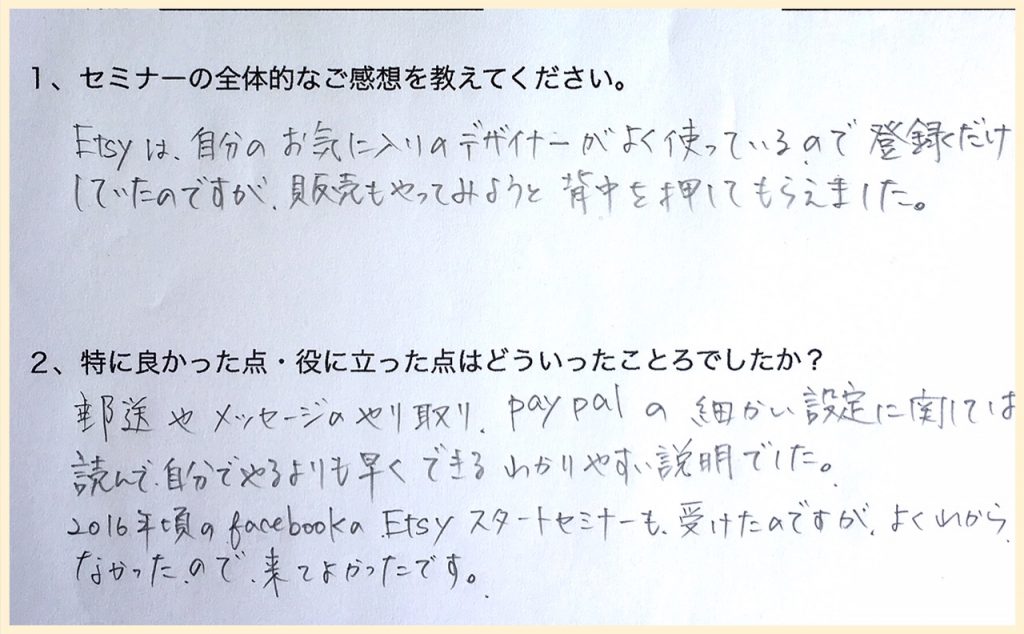 1、セミナーの全体的なご感想を教えてください。
Etsyは、自分のお気に入りのデザイナーがよく使っているので登録だけ
していたのですが、販売もやってみようと背中を押してもらえました。
2、特に良かった点・役に立った点はどういったことろでしたか？
郵送やメッセージのやり取り、paypalの細かい設定に関しては
読んで、自分でやるよりも早くできるわかりやすい説明でした。
2016年頃のfacebookのEtsyスタートセミナーも、受けたのですが、よくわから
なかったので、来てよかったです。